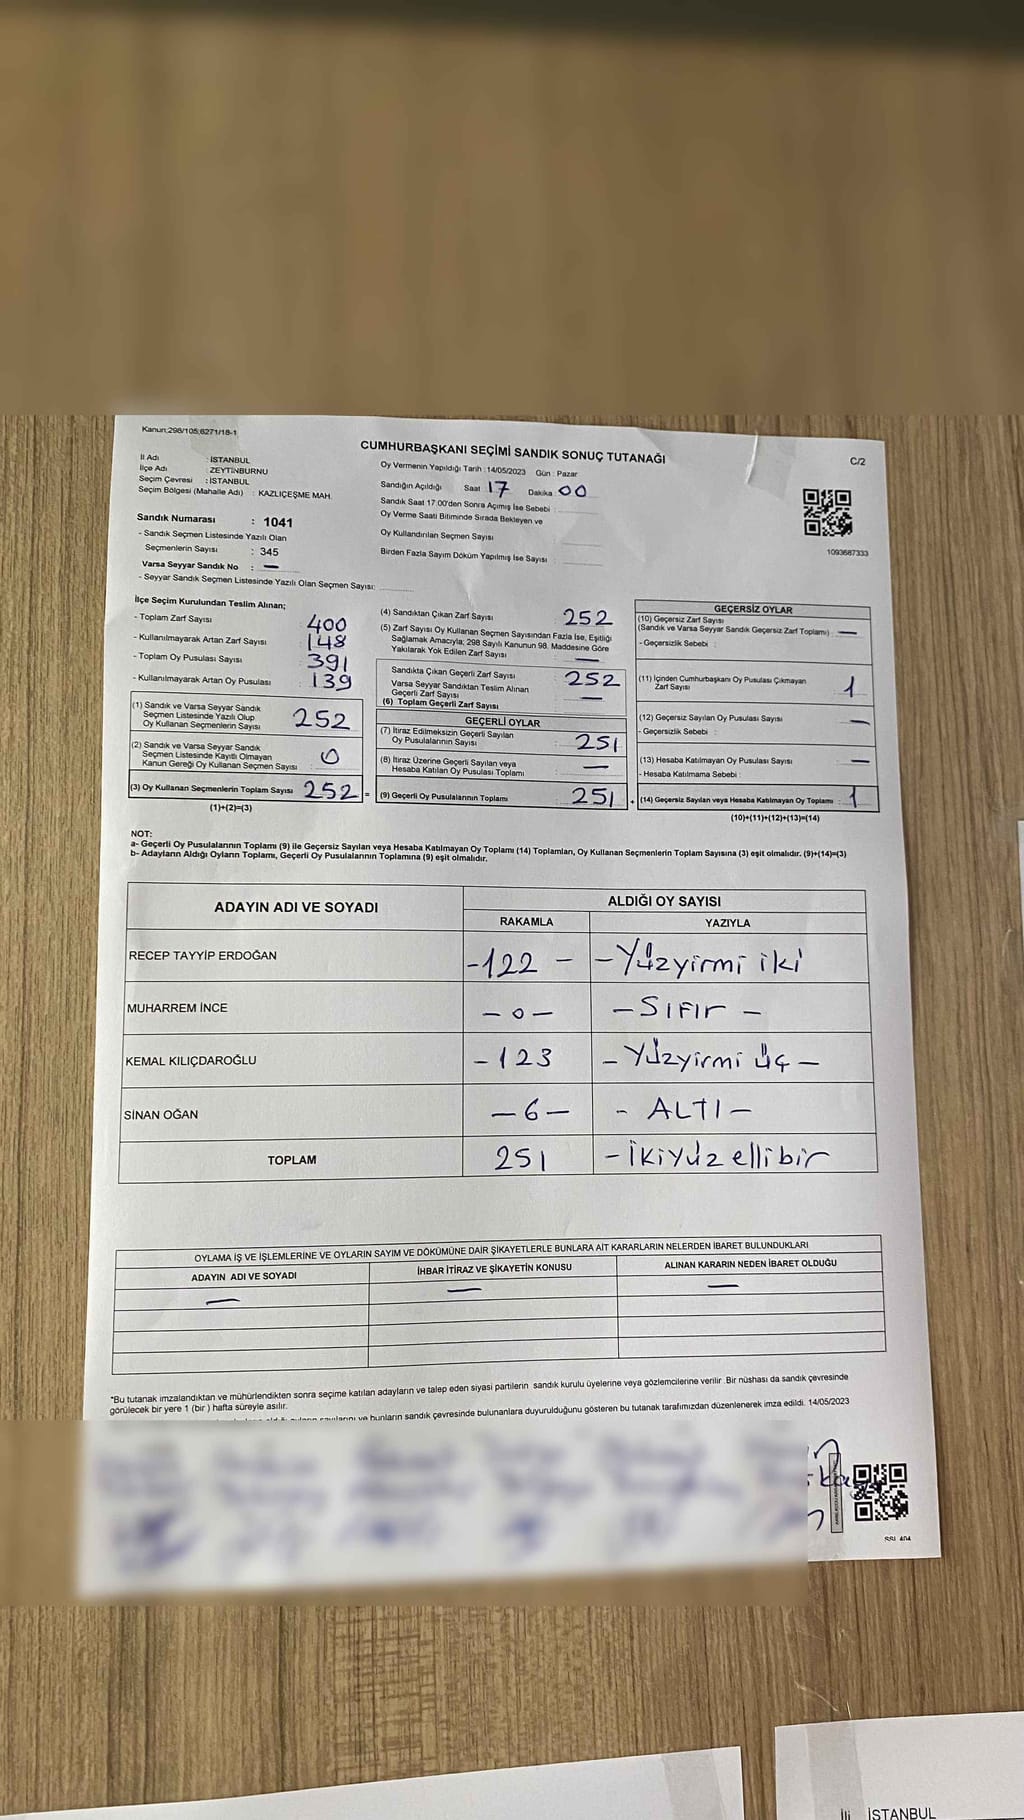 Kanun:298/105;6271/18-1
CUMHURBAŞKANI SEÇİMİ SANDIK SONUÇ TUTANAĞI
C/2
İl Adı : İSTANBUL
İlçe Adı : ZEYTİNBURNU
Seçim Çevresi : İSTANBUL
Seçim Bölgesi (Mahalle Adı) : KAZLIÇEŞME MAH.
Sandık Numarası : 1041
- Sandık Seçmen Listesinde Yazılı Olan
Seçmenlerin Sayısı : 345
Varsa Seyyar Sandık No : —
- Seyyar Sandık Seçmen Listesinde Yazılı Olan Seçmen Sayısı:
Oy Vermenin Yapıldığı Tarih : 14/05/2023 Gün : Pazar
Sandığın Açıldığı Saat 17 Dakika : 00
Sandık Saat 17:00'den Sonra Açımış İse Sebebi :
Oy Verme Saati Bitiminde Sırada Bekleyen ve
Oy Kullandırılan Seçmen Sayısı
Birden Fazla Sayım Döküm Yapılmış İse Sayısı :
1093687333
İlçe Seçim Kurulundan Teslim Alınan;
- Toplam Zarf Sayısı : 400
- Kullanılmayarak Artan Zarf Sayısı : 148
- Toplam Oy Pusulası Sayısı : 391
- Kullanılmayarak Artan Oy Pusulası : 139
(1) Sandık ve Varsa Seyyar Sandık
Seçmen Listesinde Yazılı Olup
Oy Kullanan Seçmenlerin Sayısı : 252
(2) Sandık ve Varsa Seyyar Sandık
Seçmen Listesinde Kayıtlı Olmayan
Kanun Gereği Oy Kullanan Seçmen Sayısı : 0
(3) Oy Kullanan Seçmenlerin Toplam Sayısı : 252 =
(1)+(2)=(3)
(4) Sandıktan Çıkan Zarf Sayısı : 252
(5) Zarf Sayısı Oy Kullanan Seçmen Sayısından Fazla İse, Eşitliği
Sağlamak Amacıyla; 298 Sayılı Kanunun 98. Maddesine Göre
Yakılarak Yok Edilen Zarf Sayısı : —
Sandıkta Çıkan Geçerli Zarf Sayısı : 252
Varsa Seyyar Sandıktan Teslim Alınan
Geçerli Zarf Sayısı : —
(6) Toplam Geçerli Zarf Sayısı
GEÇERLİ OYLAR
(7) İtiraz Edilmeksizin Geçerli Sayılan
Oy Pusulalarının Sayısı : 251
(8) İtiraz Üzerine Geçerli Sayılan veya
Hesaba Katılan Oy Pusulası Toplamı : —
(9) Geçerli Oy Pusulalarının Toplamı : 251 +
GEÇERSİZ OYLAR
(10) Geçersiz Zarf Sayısı
(Sandık ve Varsa Seyyar Sandık Geçersiz Zarf Toplamı) : —
- Geçersizlik Sebebi :
(11) İçinden Cumhurbaşkanı Oy Pusulası Çıkmayan
Zarf Sayısı : 1
(12) Geçersiz Sayılan Oy Pusulası Sayısı : —
- Geçersizlik Sebebi :
(13) Hesaba Katılmayan Oy Pusulası Sayısı : —
- Hesaba Katılmama Sebebi :
(14) Geçersiz Sayılan veya Hesaba Katılmayan Oy Toplamı : 1
(10)+(11)+(12)+(13)=(14)
NOT:
a- Geçerli Oy Pusulalarının Toplamı (9) ile Geçersiz Sayılan veya Hesaba Katılmayan Oy Toplamı (14) Toplamları, Oy Kullanan Seçmenlerin Toplam Sayısına (3) eşit olmalıdır. (9)+(14)=(3)
b- Adayların Aldığı Oyların Toplamı, Geçerli Oy Pusulalarının Toplamına (9) eşit olmalıdır.
ADAYIN ADI VE SOYADI
ALDIĞI OY SAYISI
RAKAMLA YAZIYLA
RECEP TAYYİP ERDOĞAN -122 - -Yüzyirmi iki
MUHARREM İNCE -0- -SIFIr -
KEMAL KILIÇDAROĞLU -123 -Yüzyirmi üç-
SİNAN OĞAN -6- - ALTI-
TOPLAM 251 -İkiyüz ellibir
OYLAMA İŞ VE İŞLEMLERİNE VE OYLARIN SAYIM VE DÖKÜMÜNE DAİR ŞİKAYETLERLE BUNLARA AİT KARARLARIN NELERDEN İBARET BULUNDUKLARI
ADAYIN ADI VE SOYADI İHBAR İTİRAZ VE ŞİKAYETİN KONUSU ALINAN KARARIN NEDEN İBARET OLDUĞU
— — —
*Bu tutanak imzalandıktan ve mühürlendikten sonra seçime katılan adayların ve talep eden siyasi partilerin sandık kurulu üyelerine veya gözlemcilerine verilir. Bir nüshası da sandık çevresinde
görülecek bir yere 1 (bir ) hafta süreyle asılır.
ve bunların sandık çevresinde bulunanlara duyurulduğunu gösteren bu tutanak tarafımızdan düzenlenerek imza edildi. 14/05/2023
İli İSTANBUL